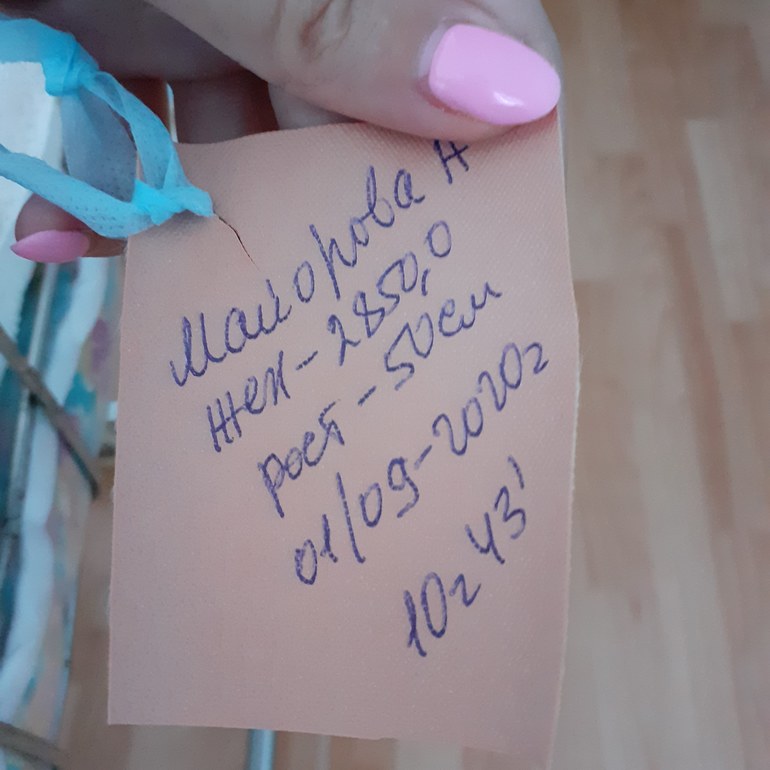 Майорова А
жен - 2850,0
рост - 50 см
01/09-2020г
10ч 43'